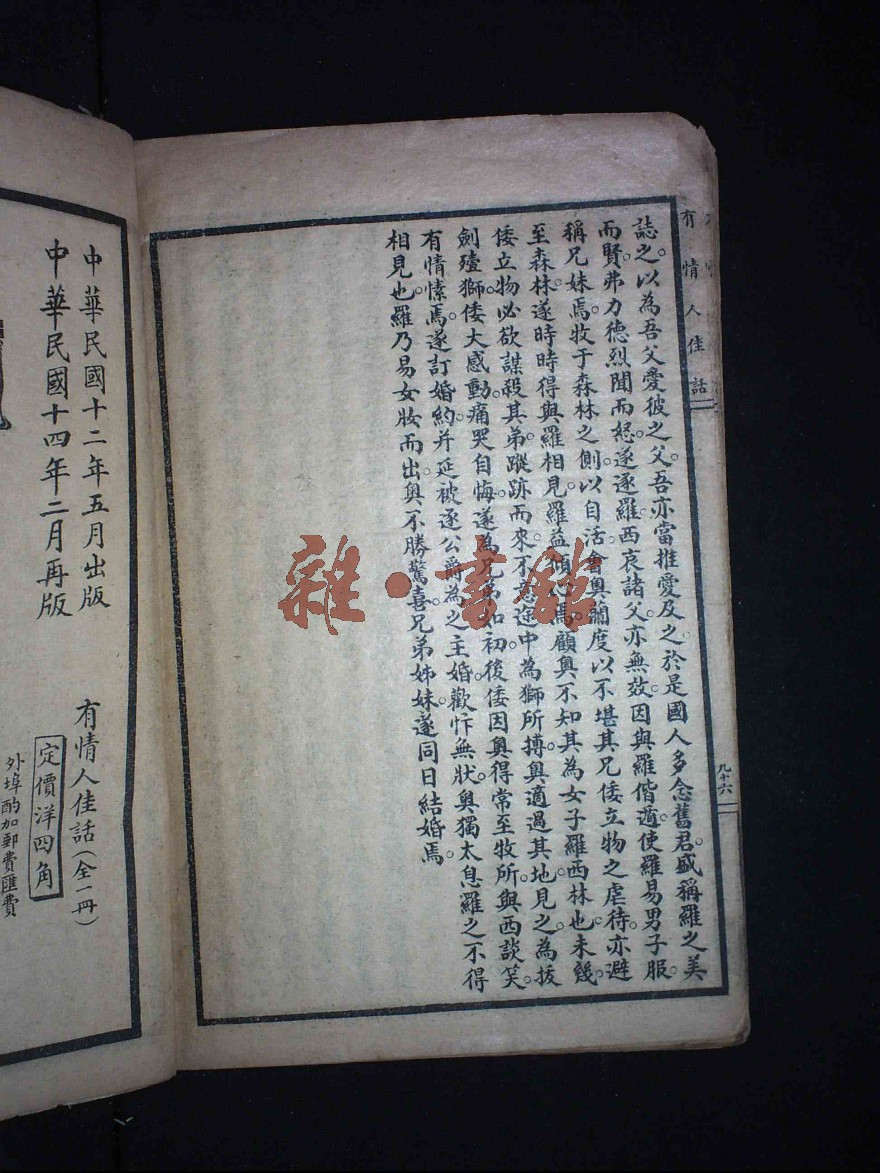 有情人佳話
九十六
誌之。以為吾父愛彼之父。吾亦當推愛及之。於是國人多念舊君。盛稱羅之美
而賢。弗力德烈聞而怒。遂逐羅西哀諸父。亦無效。因與羅偕遁。使羅易男子服。
稱兄妹焉。牧于森林之側以自活。會奧蘭度以不堪其兄倭立物之虐待。亦避
至森林。遂時時得與羅相見。羅益傾心焉。顧奧不知其為女子羅西林也。未幾。
倭立物必欲謀殺其弟。蹤跡而來。不意途中為獅所搏。奧適過其地。見之。為拔
劍殪獅。倭大感動。痛哭自悔。遂為兄弟如初。後倭因奧得常至牧所。與西談笑。
有情愫焉。遂訂婚約。并延被逐公爵為之主婚。歡忭無狀。奧獨太息羅之不得
相見也。羅乃易女妝而出。奧不勝驚喜。兄弟姊妹。遂同日結婚焉。
中華民國十二年五月出版
中華民國十四年二月再版
有情人佳話(全一冊)
定價洋四角
外埠酌加郵費匯費
雜·書館